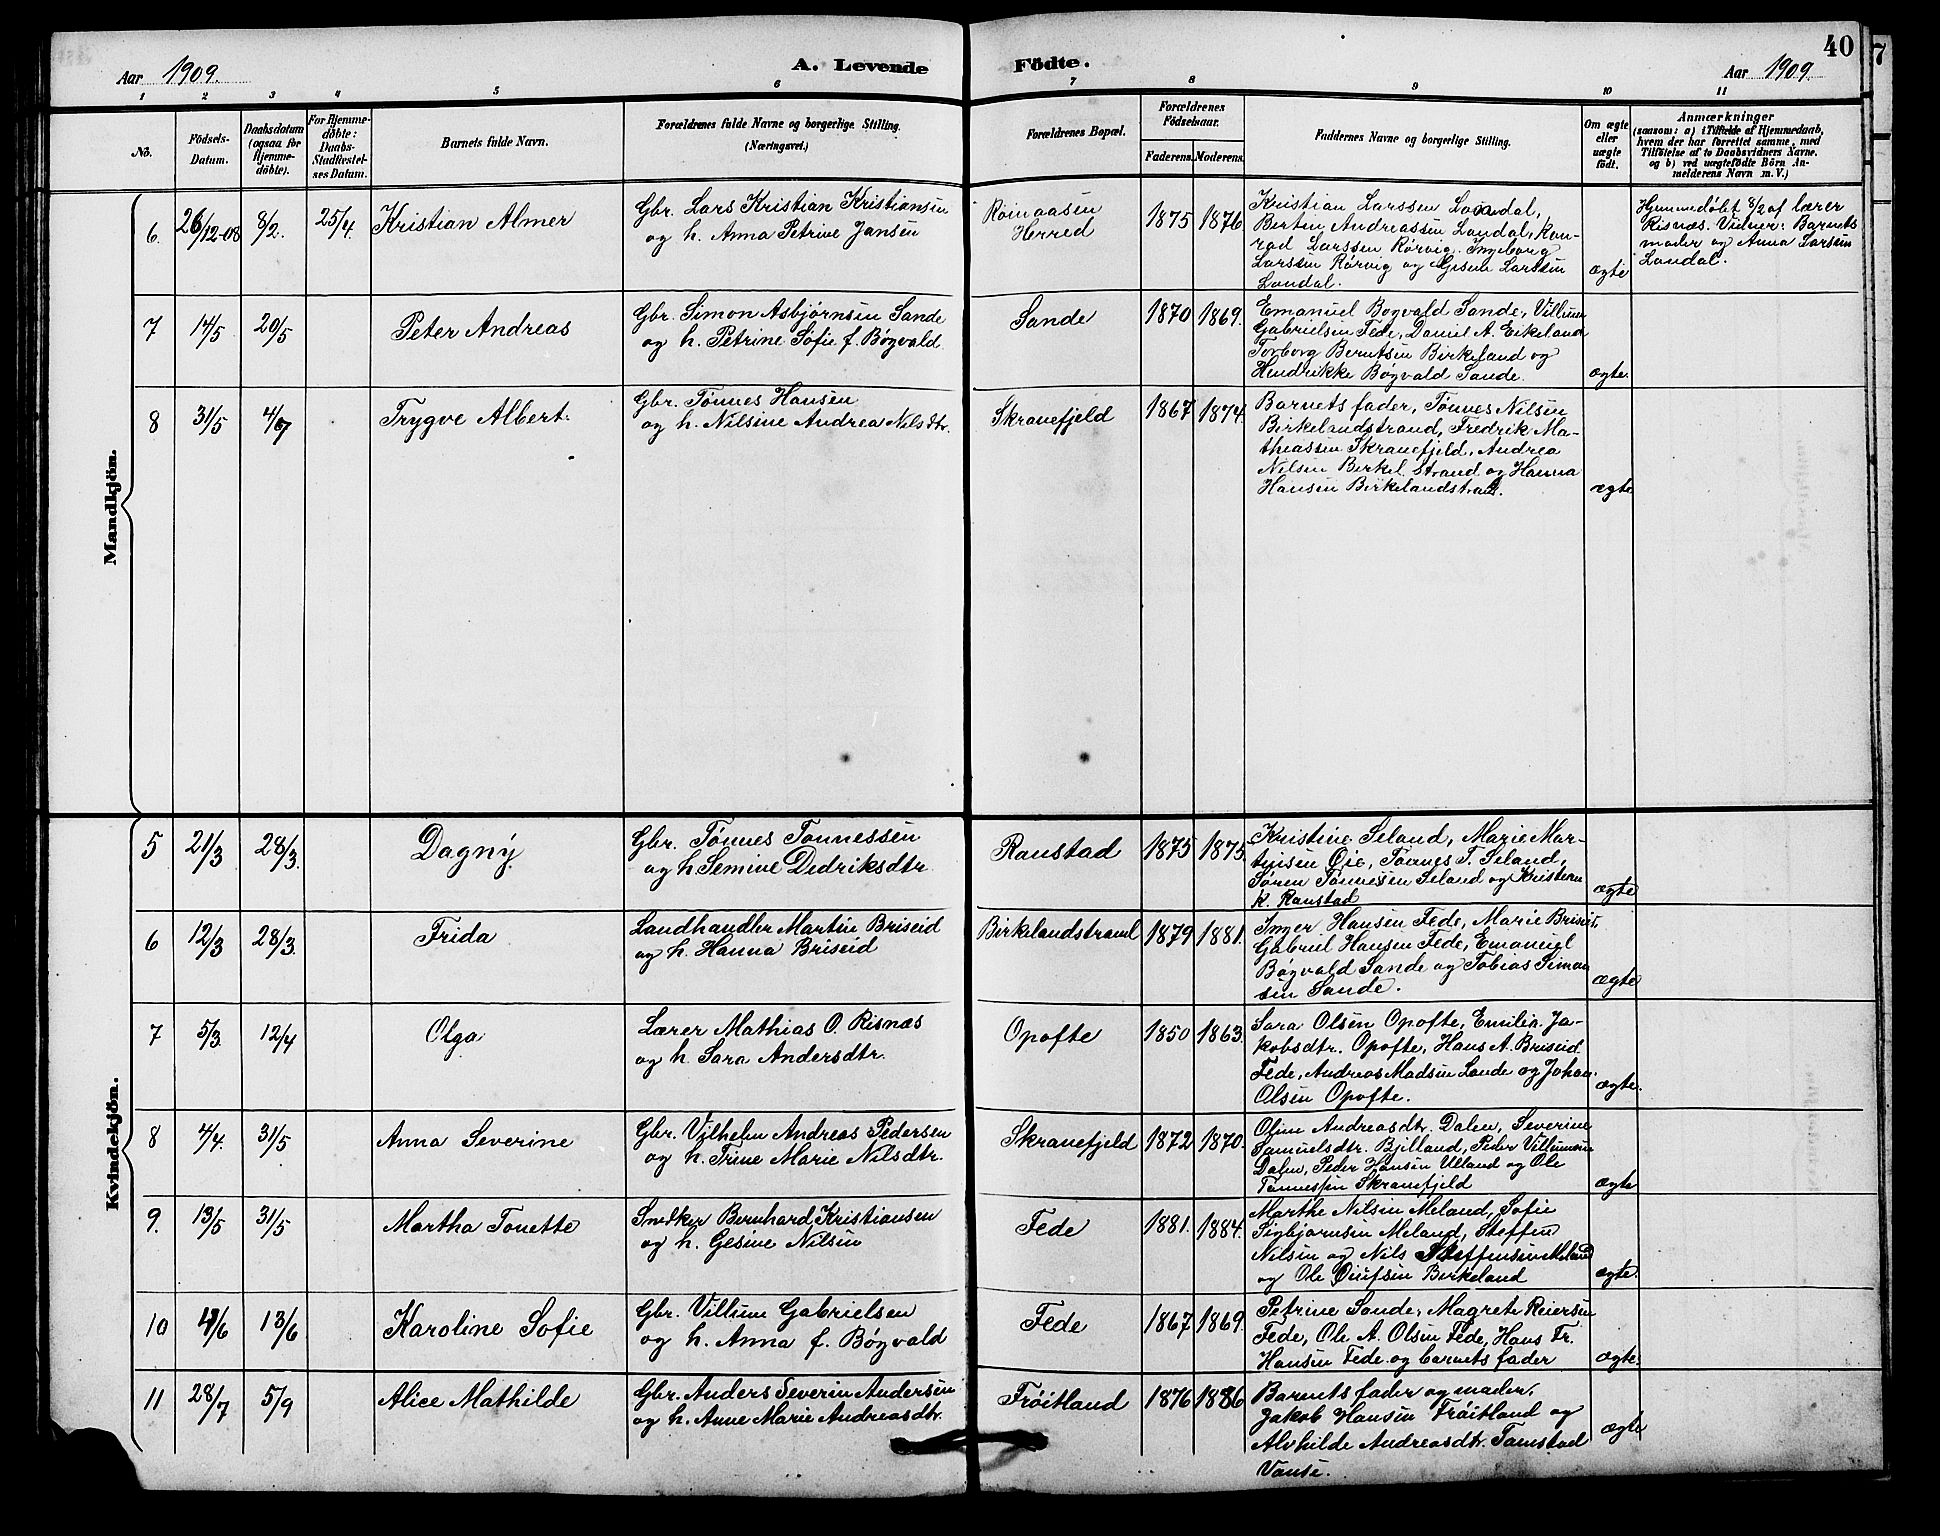 40
7
Aar 1909.
A. Levende
Födte.
Aar 1909
1 2 3 4 5 6 7 8 9 10 11
No.
Födsels-
Datum.
Daabsdatum
(ogsaa for
Hjemme-
döbte).
For Hjemme-
döbte:
Daabs-
Stadfæstel-
ses Datum.
Barnets fulde Navn.
Forældrenes fulde Navne og borgerlige Stilling.
(Næringsvei.)
Forældrenes Bopæl.
Forældrenes
Födselsaar.
Faderens. Moderens.
Faddernes Navne og borgerlige Stilling.
Om ægte
eller
uægte
födt.
Anmærkninger
(saasom: a) i Tilfælde af Hjemmedaab,
hvem der har forrettet samme, med
Tilföielse af to Daabsvidners Navne.
og b) ved uægtefödte Börn An-
melderens Navn m. V.)
Mandkjön.
6. 26/12-08 8/2. 25/4. Kristian Almer
Gbr. Lars Kristian Kristiansen
og h. Anna Petrine Jansen
Röinaasen
Herred
1875 1876
Kristian Larssen Londal,
Bertin Andreassen Londal, Kon-
rad Larssen Rörvig. Ingeborg
Larssen Rörvig og Gesine Larssen
Londal.
ægte
Hjemmedøbt 8/2 af lærer
Risnæs. Vidner: Barnets
moder og Anna Larssen
Londal.
7 14/5 20/5 Peter Andreas
Gbr. Simon Asbjørnsen Sande
og h. Petrine Sofie f. Bøgvald
Sande
1870 1869.
Emanuel Bogvald Sande, Villum
Gabrielsen Fede, Daniel A. Eikeland
Torborg Berntsen Birkeland og
Hendrikke Bøgvald Sande.
ægte.
8 31/5 4/7 Trygve Albert.
Gbr. Tönnes Hansen
og h. Nilsine Andrea Nilsdtr.
Skranefjeld
1867 1874.
Barnets fader, Tönnes Nilsen
Birkelandstrand, Fredrik Ma-
theassen Skranefjeld, Andrea
Nilsen Birkel.strand og Hanna
Hansen Birkelandstrand.
ægte
Kvindekjön.
5 21/3 28/3. Dagny
Gbr. Tönnes Tonnessen
og h. Semine Didriksdtr.
Ranstad
1875 1875
Kristine Seland, Marie Mar-
tinsen Öie, Tönnes T. Seland,
Sören Tönnessen Seland og Kristian
K. Ranstad
ægte
6 12/3 28/3. Frida
Landhandler Martin Briseid
og h. Hanna Briseid
Birkelandstrand
1879 1881.
Inger Hansen Fede, Marie Briseid,
Gabriel Hansen Fede, Emanuel
Bøgvald Sande og Tobias Simon
sen Sande.
ægte
7 5/3 12/4 Olga
Lærer Mathias O. Risnæs
og h. Sara Andersdtr.
Opofte
1850 1863.
Sara Olsen Opofte, Emilie Ja-
kobsdtr. Opofte, Hans A. Briseid
Fede, Andreas Madsen Sande og Johan
Olsen Opofte.
ægte.
8 4/4. 31/5 Anna Severine
Gbr. Vilhelm Andreas Pedersen
og h. Trine Marie Nilsdtr.
Skranefjeld
1872 1870.
Oline Andreasdtr. Dalen, Severine
Samuelsdtr. Bjelland, Peder Villumsen
Dalen, Peder Hansen Ulland og Ole
Tønnessen Skranefjeld
ægte
9. 13/5 31/5 Martha Tonette
Snedker Bernhard Kristiansen
og h. Gesine Nilsen
Fede
1881. 1884.
Marthe Nilsen Meland, Sofie
Sigbjørnsen Meland, Steffen
Nilsen og Nils Steffensen Meland
og Ole Birkeland
ægte.
10 4/6 13/6 Karoline Sofie
Gbr. Villum Gabrielsen
og h. Anna f. Bøgvald
Fede
1867 1869.
Petrine Sande, Magrete Reiersen
Fede, Ole A. Olsen Fede, Hans Fr.
Hansen Fede og barnets fader
ægte.
11 28/7 5/9 Alice Mathilde
Gbr. Anders Severin Andersen
og h. Anne Marie Andreasdtr.
Fröitland
1876 1886
Barnets fader og moder,
Jakob Hansen Fröitland og
Alvhilde Andreasdtr. Tamstad
Vanse.
ægte